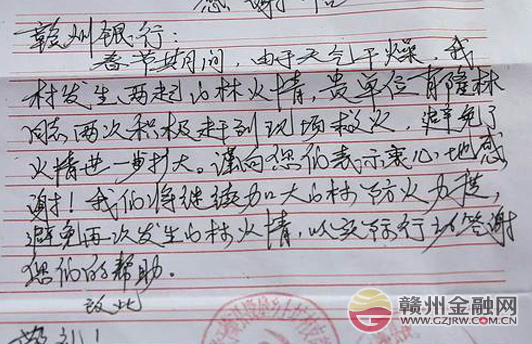 感谢信
赣州银行：
春节期间，由于天气干燥，我
村发生两起山林火情，贵单位有隆林
同志两次积极赶到现场救火，避免了
火情进一步扩大。谨向您们表示衷心地感
谢！我们将继续加大山林防火力度，
避免再次发生山林火情，以实际行动答谢
您们的帮助。
致此
敬礼！
赣州金融网
WWW.GZJRW.COM.CN